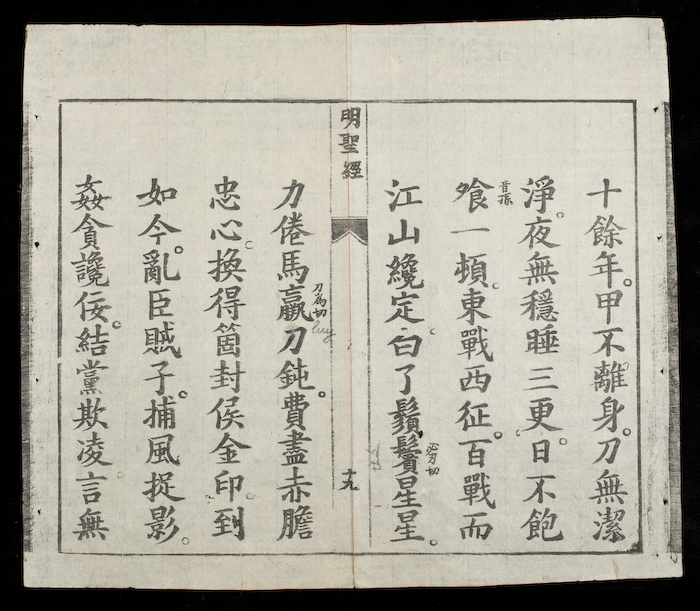 十餘年。甲不離身。刀無潔
淨。夜無穩睡三更。日不飽
飱音孫一頓。東戰西征。百戰而
江山纔定。白了鬚鬢必刃切星星。
明聖經
十九
力倦馬羸力為切luy刀鈍。費盡赤膽
忠心。換得箇封侯金印。到
如今。亂臣賊子。捕風捉影。
姦貪讒佞。結黨欺凌。言無